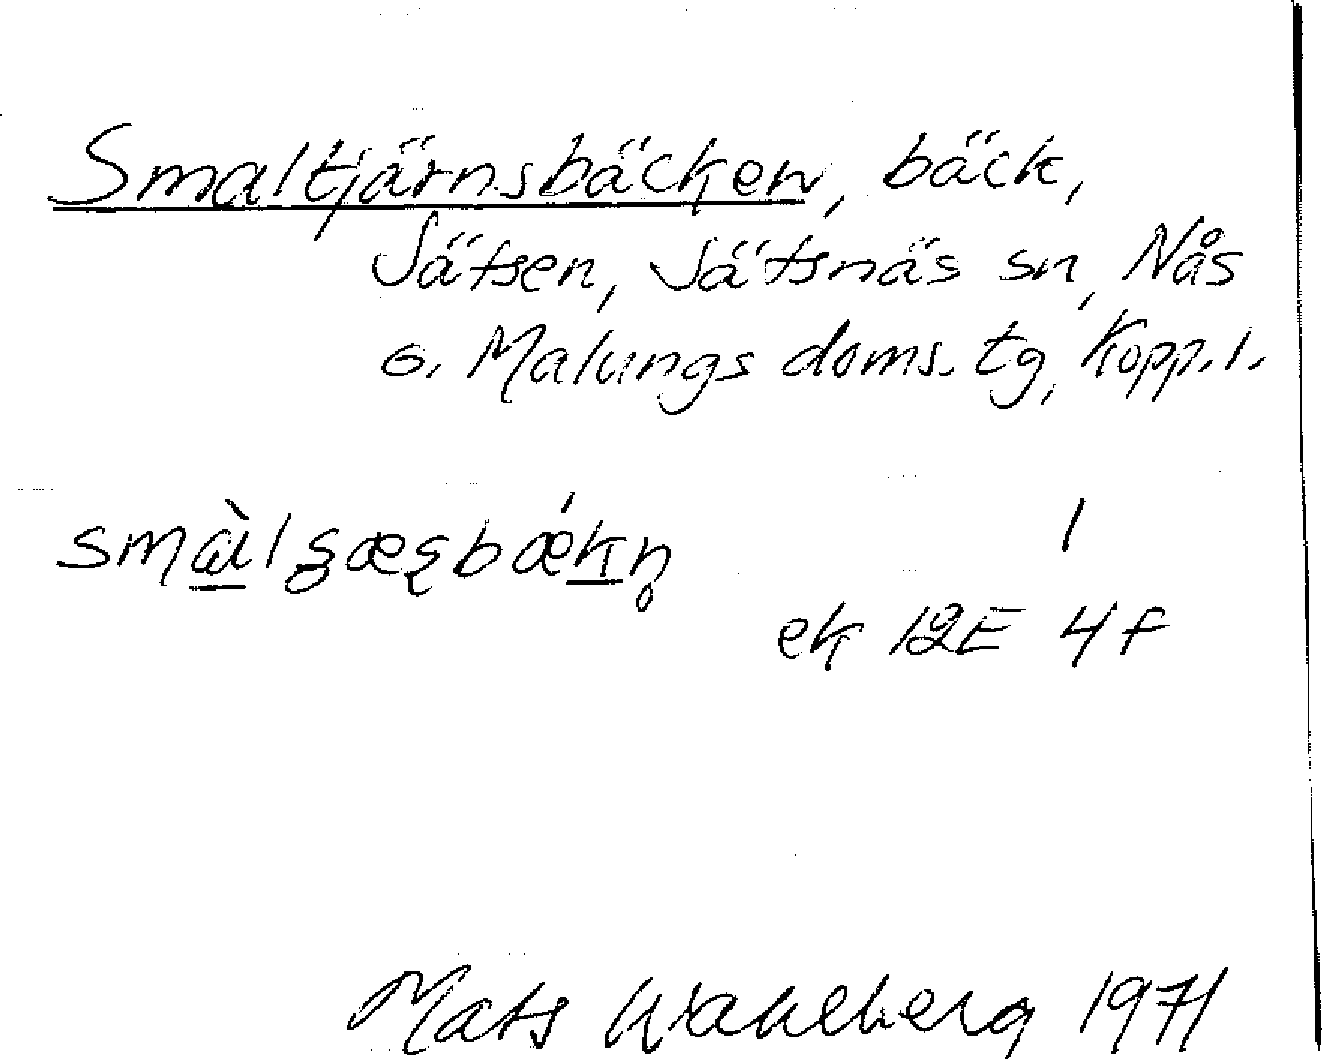 Smaltjärnsbäcken, bäck,
Jätsen, Jätsnäs sn, Nås
o. Malungs doms. tg, Kopp. l.
1
ek 12E 4f
Mats Wahlberg 1971